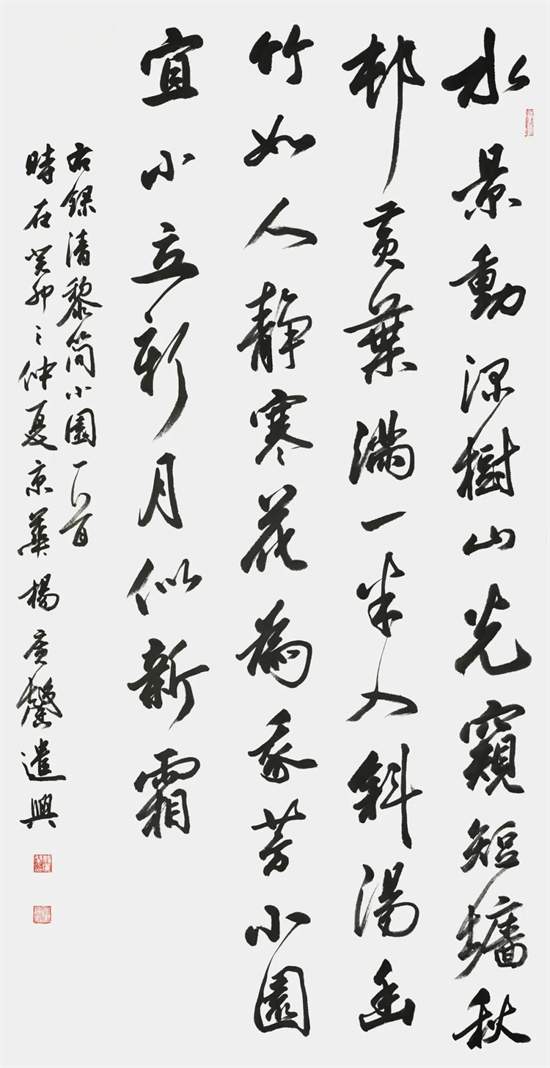 水景動深樹山光窺短墻秋
邨黃葉滿一半入斜陽幽
竹如人靜寒花為我芳小園
宜小立新月似新霜
右錄清黎簡小園一首
時在癸卯之仲夏京華楊廣馨遣興